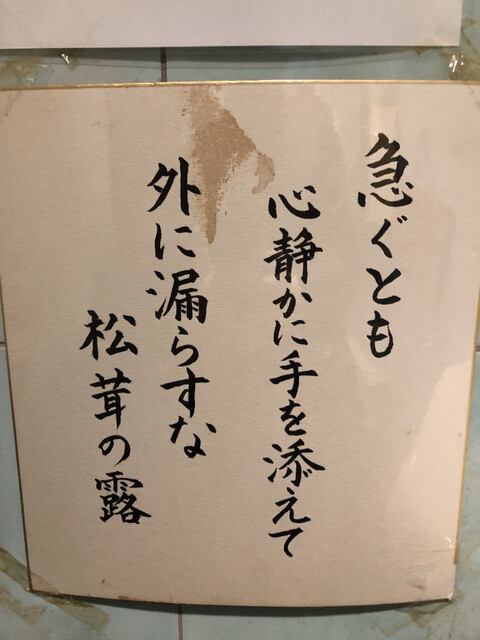 急ぐとも
心静かに手を添えて
外に漏らすな
松茸の露